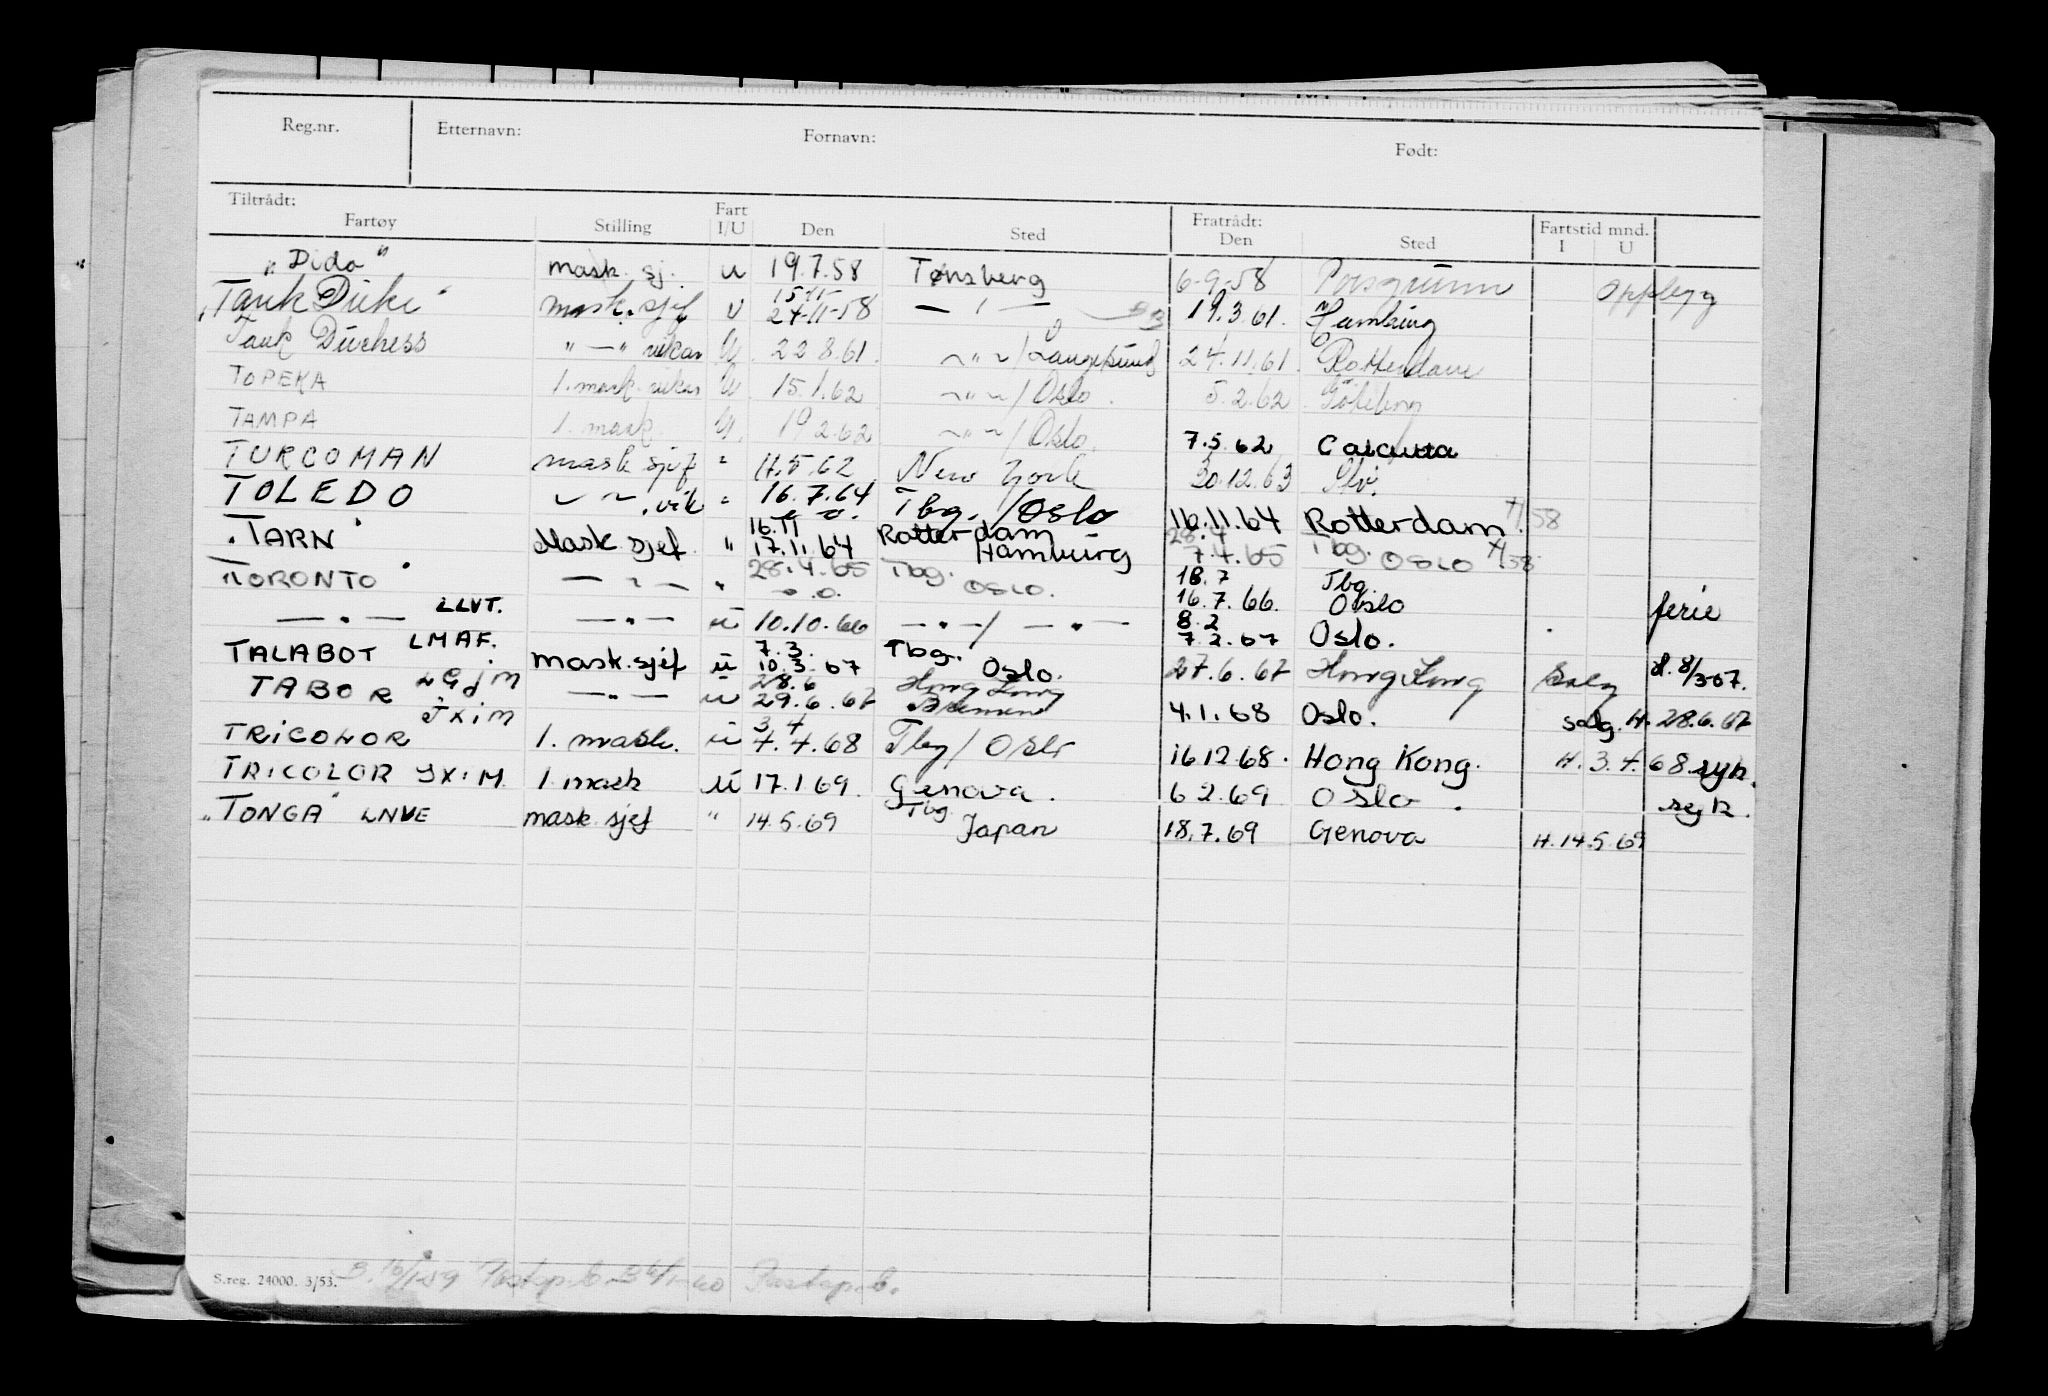 Reg.nr. Etternavn: Fornavn: Født:
Tiltrådt: Fratrådt: Fartstid mnd.
Fartøy Stilling Fart I/U Den Sted Den Sted I U
"Dido" mask. sj. u 19.7.58 Tønsberg 6-9-58 Porsgrunn Opplegg
"Tank Duke" mask. sjef u 15-11- 24-11-58 — " — 19.3.61. Hamburg
Tank Duchess " — " vikar U. 22 8.61. ~ " ~ / Langesund 24.11.61. Rotterdam
TOPEKA 1. mask. vikar U. 15.1.62 ~ " ~ / Oslo. 5.2.62 Göteborg
TAMPA 1. mask. U. 19 2.62 ~ " ~ / Oslo. 7.5.62 Calcutta
TURCOMAN mask sjef " 11.5.62 New York 30.12.63
TOLEDO ~ ~ . vik " 16.7.64 Tbg. / Oslo 16.11.64 Rotterdam.
"TARN" Mask sjef " 16.11 17.11.64 Rotterdam Hamburg 28.4 7.4.65 Tbg. OSLO
"TORONTO" — " — " 28.4.65 Tbg. OSLO. 18.7 16.7.66. Tbg Oslo
— " — LLVT. — " — u 10.10.66 — " — / — " — 8.2 7.2.67 Oslo. ferie
TALABOT LMAF. mask.sjef u 7.3. 10.3.67 Tbg. Oslo. 27.6.67 Hong Kong Salg H. 8/3-67.
TABOR LGJM — " — u 28.6 29.6.67 Hong Kong Bremen 4.1.68 Oslo. salg. H. 28.6.67
TRICOLOR JXIM 1. mask. u 3 4 4.4.68 Tbg / Oslo 16.12.68. Hong Kong. H. 3.4.68 syk.
TRICOLOR JXIM. 1. mask u 17.1 69. Genova. 6 2.69 Oslo. syk.
"TONGA" LNVE mask. sjef " 14.5.69 Tbg. Japan 18.7.69 Genova H. 14.5.69
S.reg. 24000. 3/53.